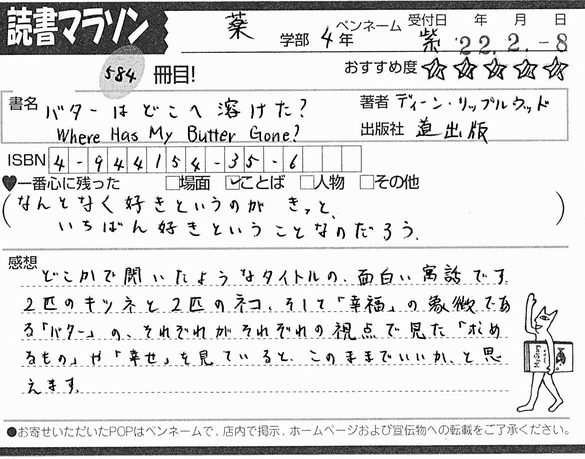 読書マラソン
薬 学部 4年
ペンネーム 紫
受付日 年 月 日
'22. 2. -8
584 冊目!
おすすめ度 ☆☆☆☆☆
書名 バターはどこへ溶けた?
Where Has My Butter Gone?
著者 ディーン・リップルウッド
出版社 道出版
ISBN 4-944154-35-6
♥一番心に残った □場面 ☑ことば □人物 □その他
(なんとなく好きというのが きっと、
いちばん好きということなのだろう。)
感想
どこかで聞いたようなタイトルの、面白い寓話です。
2匹のキツネと2匹のネコ、そして「幸福」の象徴であ
る「バター」の、それぞれがそれぞれの視点で見た「求め
るもの」や「幸せ」を見ていると、このままでいいか、と思
えます。
●お寄せいただいたPOPはペンネームで、店内で掲示、ホームページおよび宣伝物への転載をご了承ください。